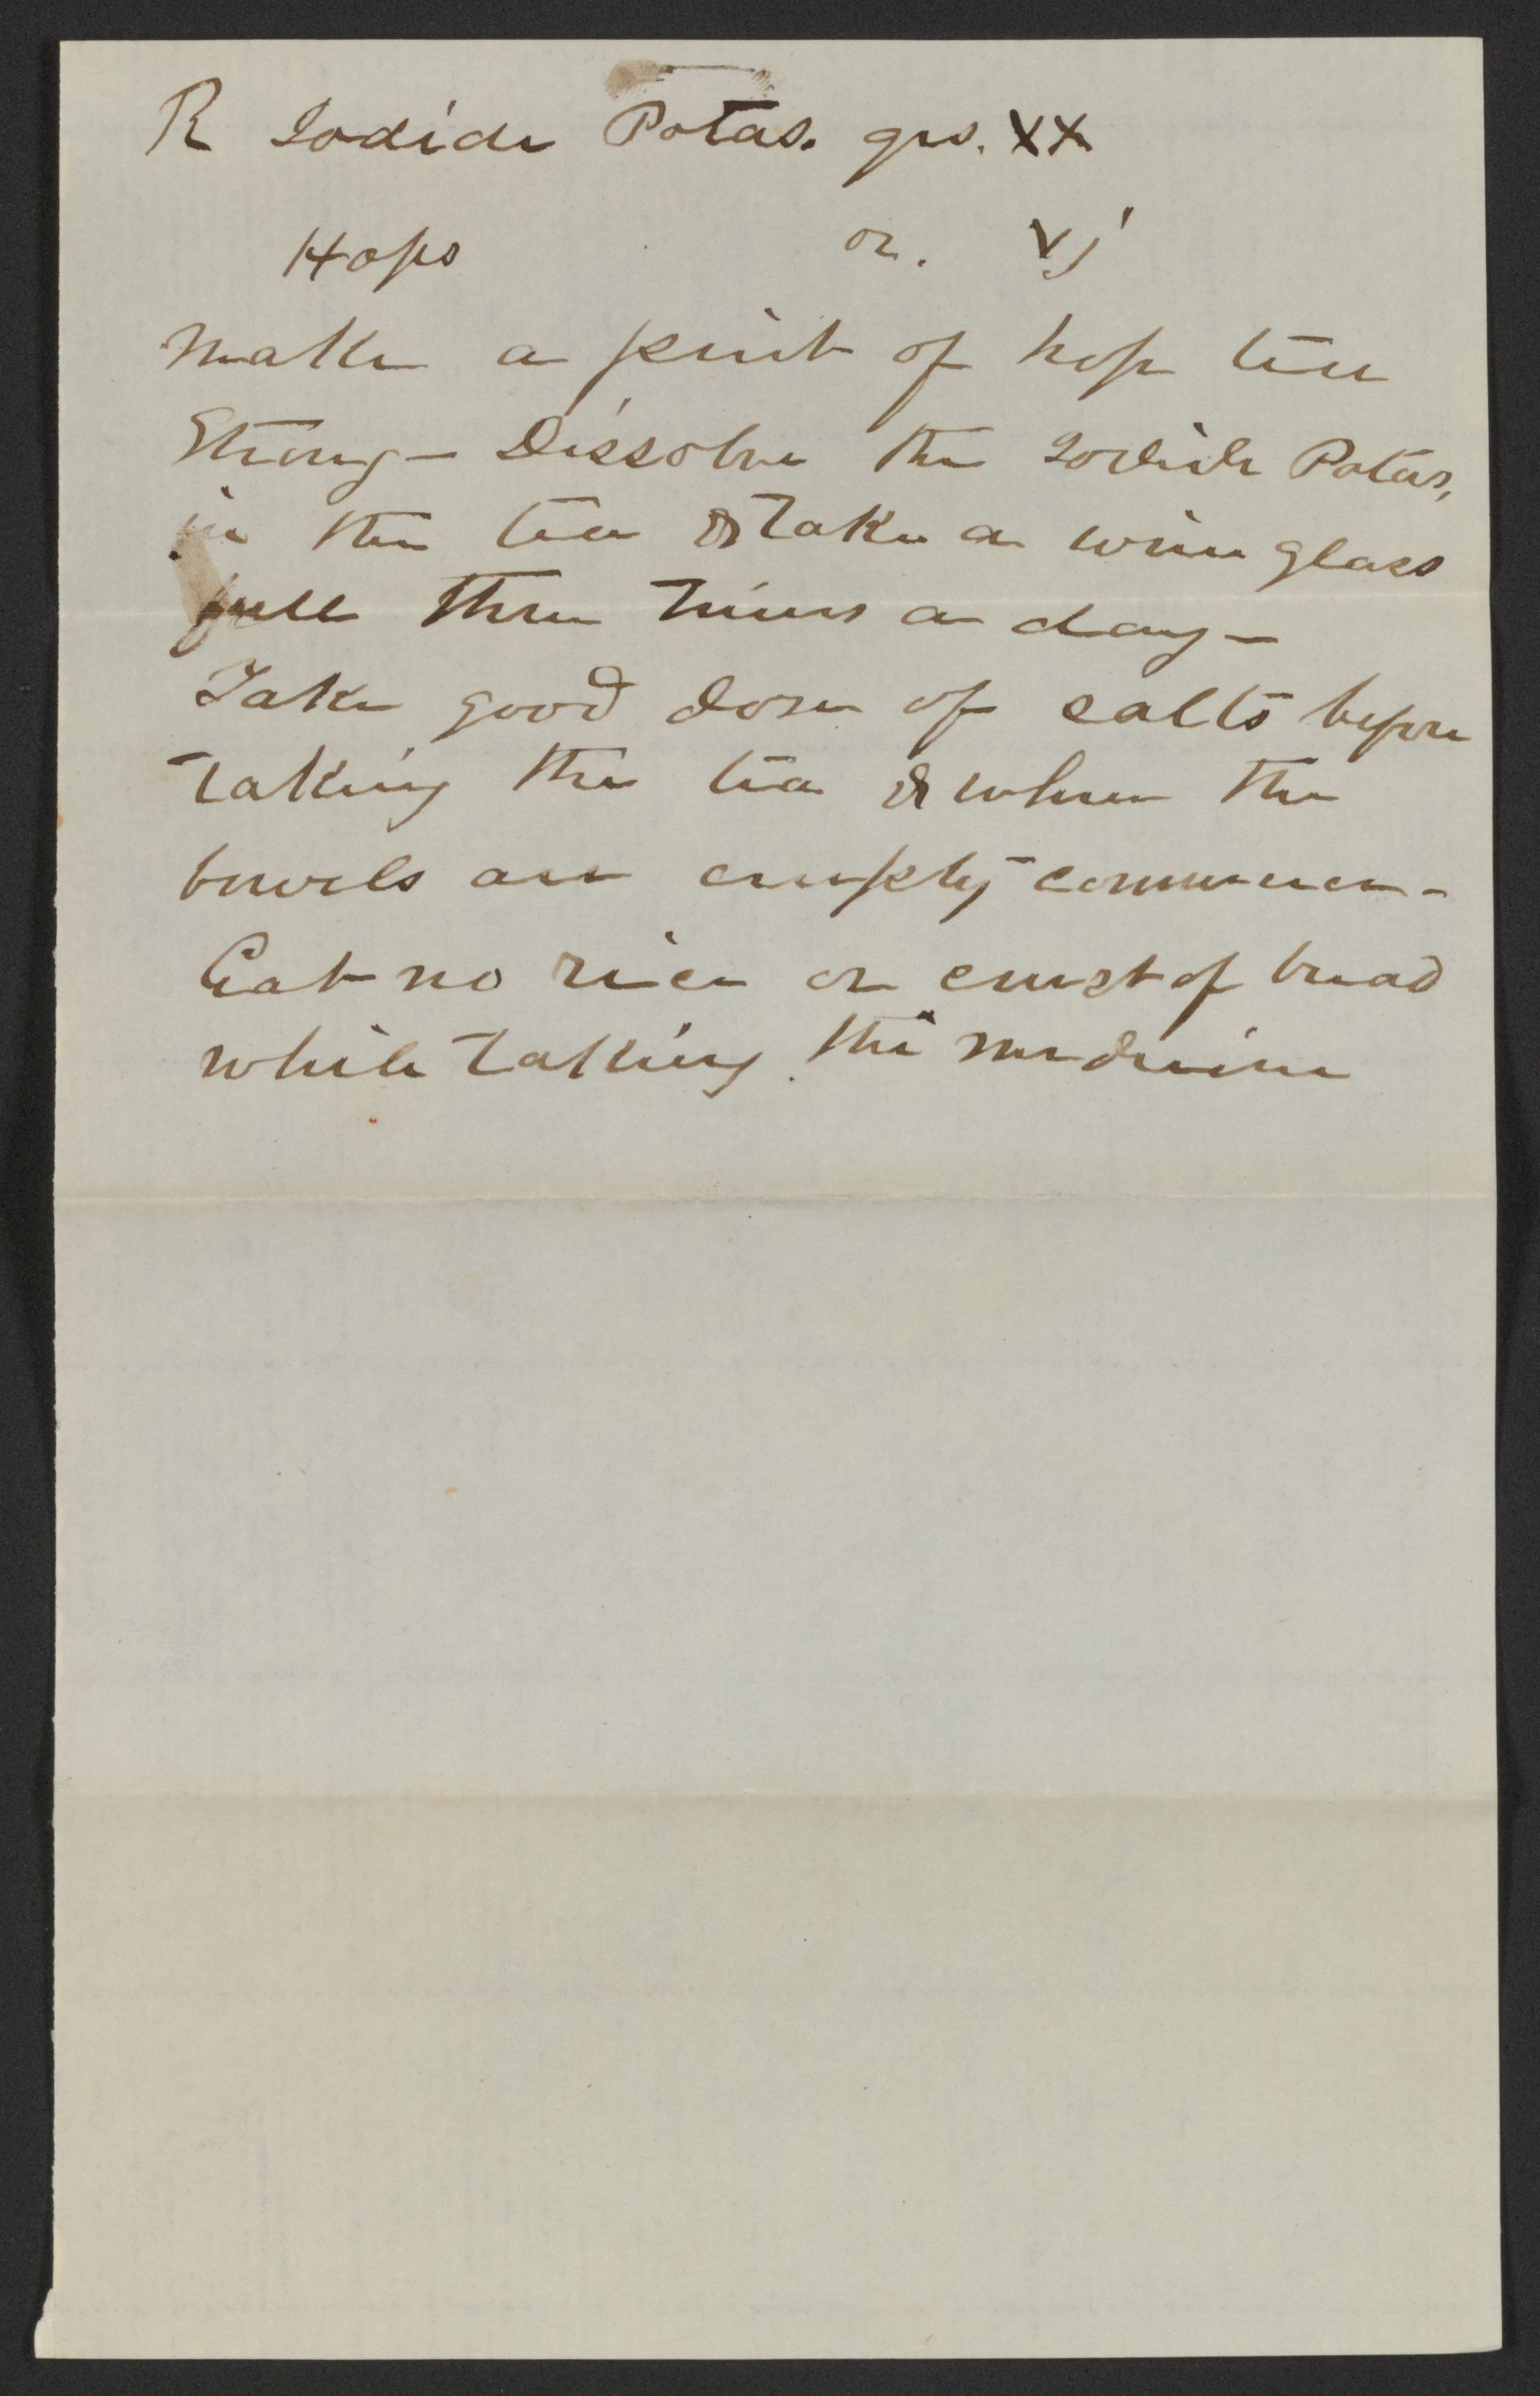 R Iodide Potas. grs. XX
Hops oz. vj
Make a pint of hop tea
Strong - Dissolve the Iodide Potas,
in the tea & take a wine glass
full three times a day -
Take good dose of salts before
taking the tea & when the
bowels are empty commence -
Eat no rice or crust of bread
while taking the medicine